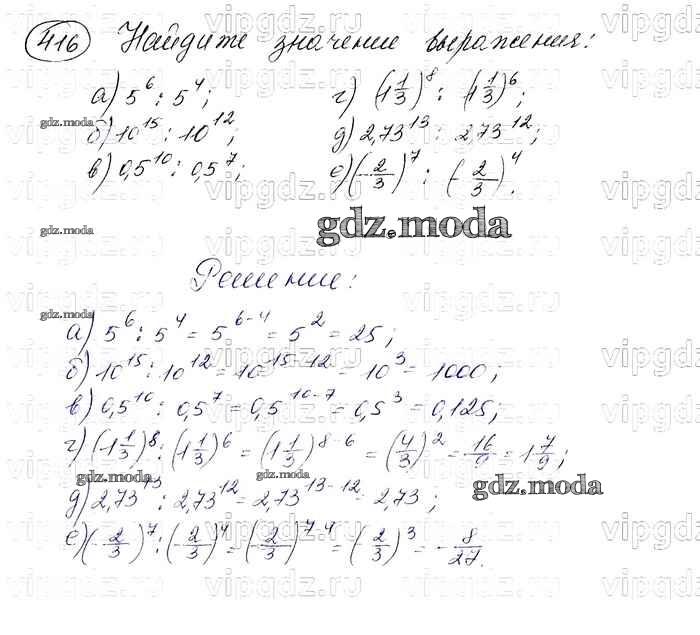 416 Найдите значение выражения:
а) 5^6 : 5^4; г) (1 1/3)^8 : (1 1/3)^6;
б) 10^15 : 10^12; д) 2,73^13 : 2,73^12;
в) 0,5^10 : 0,5^7; е) (-2/3)^7 : (-2/3)^4.
gdz.moda
Решение:
а) 5^6 : 5^4 = 5^6-4 = 5^2 = 25;
б) 10^15 : 10^12 = 10^15-12 = 10^3 = 1000;
в) 0,5^10 : 0,5^7 = 0,5^10-7 = 0,5^3 = 0,125;
г) (1 1/3)^8 : (1 1/3)^6 = (1 1/3)^8-6 = (4/3)^2 = 16/9 = 1 7/9;
gdz.moda
д) 2,73^13 : 2,73^12 = 2,73^13-12 = 2,73;
е) (-2/3)^7 : (-2/3)^4 = (-2/3)^7-4 = (-2/3)^3 = -8/27.